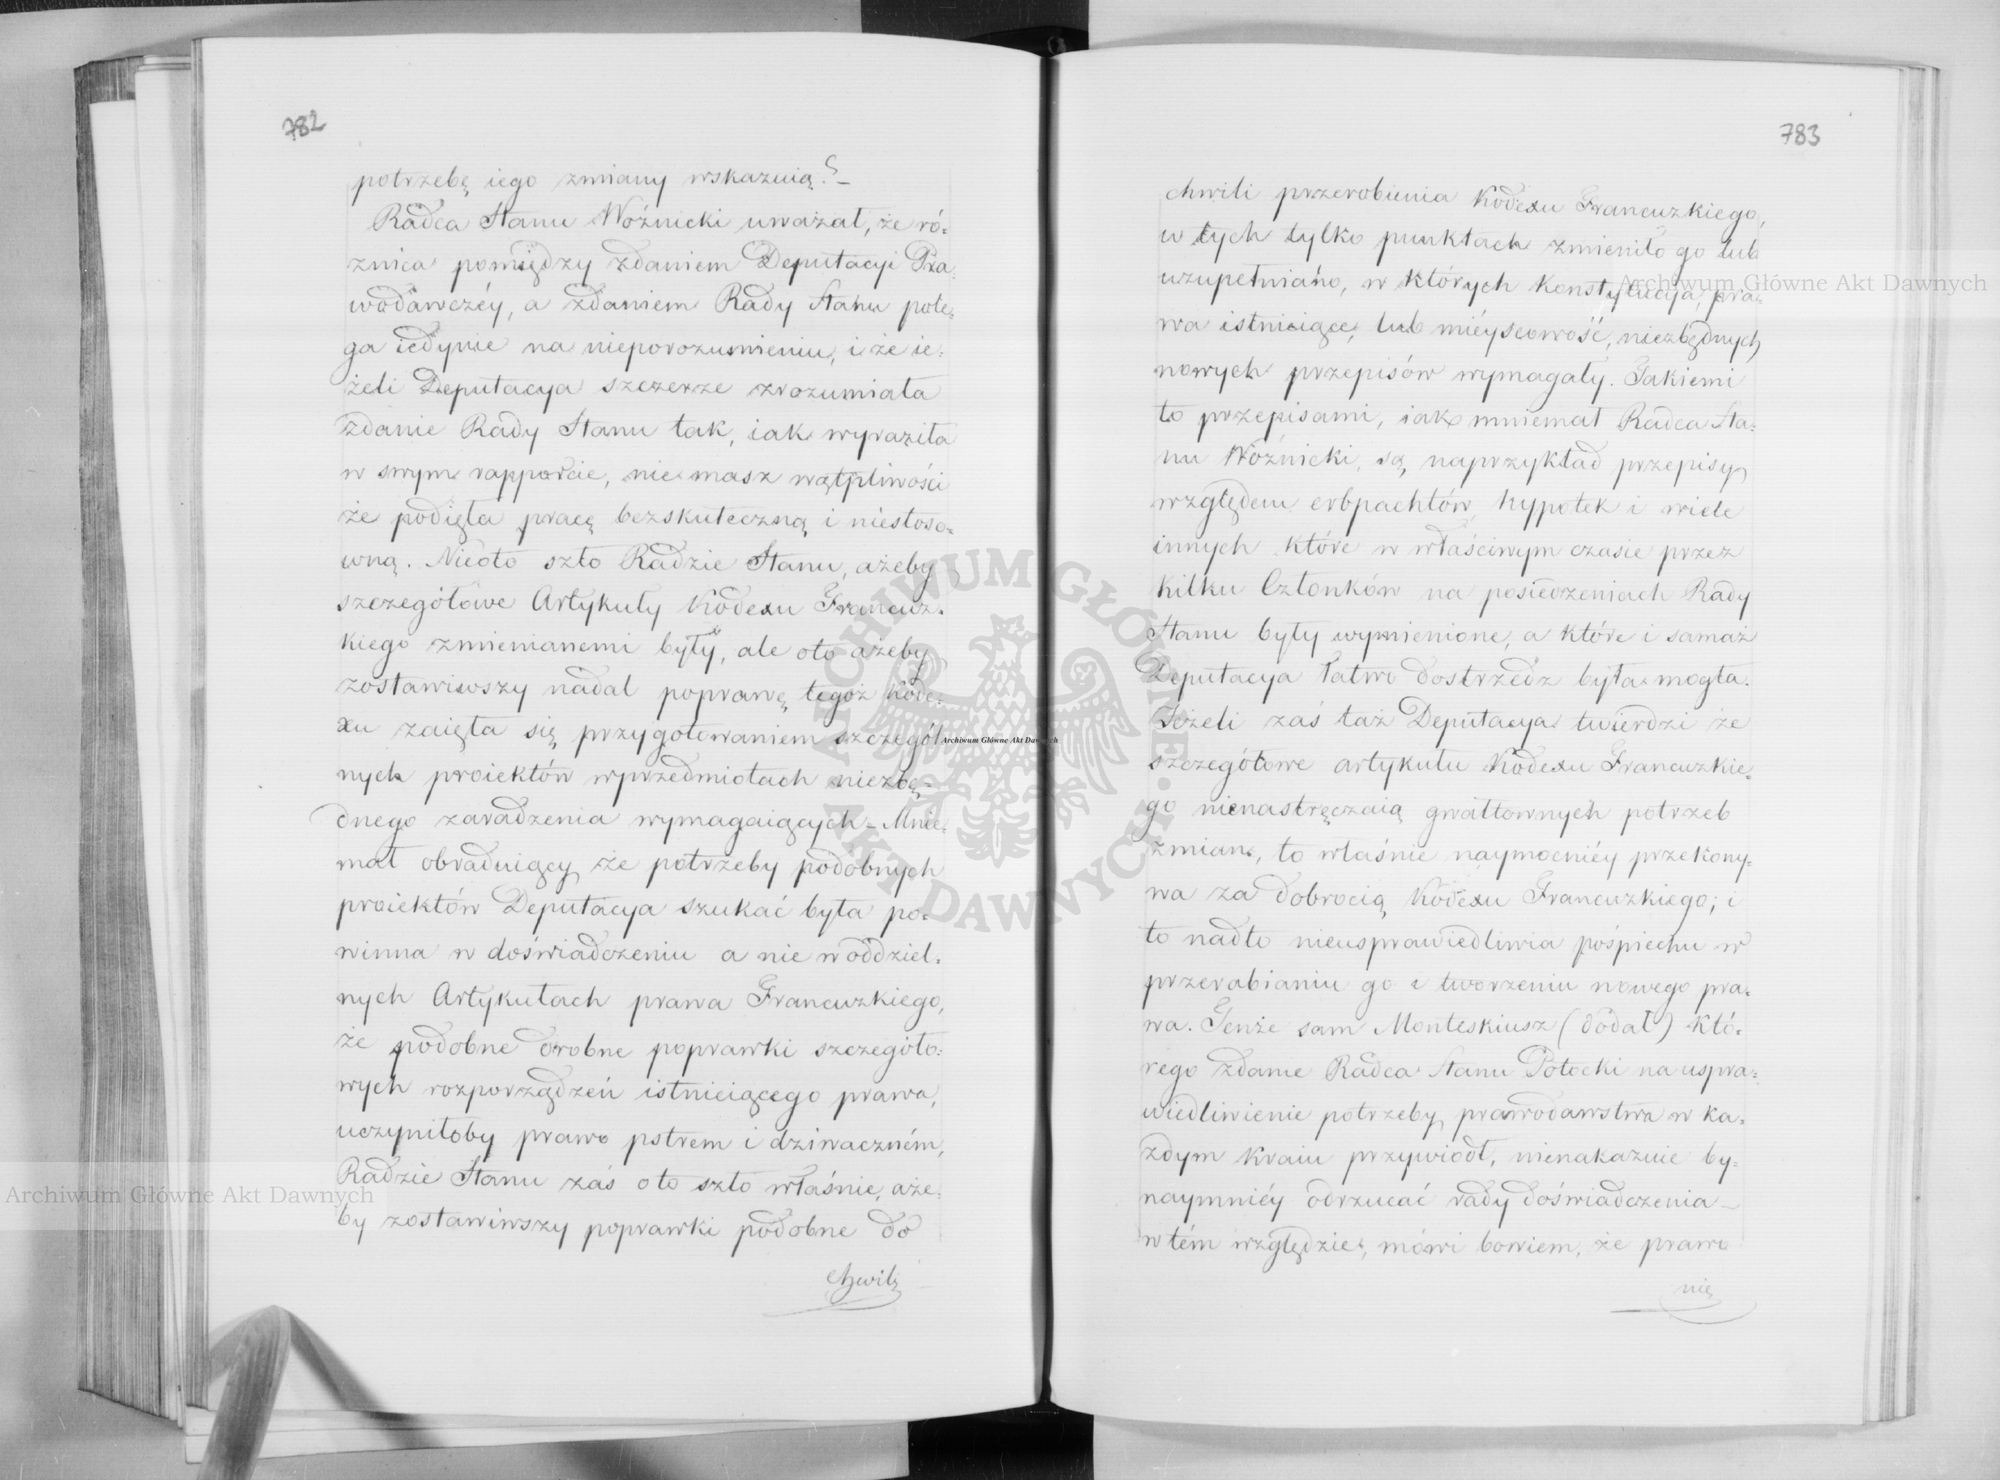 782
potrzebę iego zmiany wskazuią?_
Radca Stanu Woźnicki uważał, że ró=
znica pomiędzy zdaniem Deputacyi Pra=
wodawczéy, a zdaniem Rady Stanu pole=
ga iedynie na nieporozumieniu, i że ie=
żeli Deputacya szczerze zrozumiała
zdanie Rady Stanu tak, iak wyraziła
w swym rapporcie, nie masz wątpliwości
że podięła pracę bezskuteczną i niestoso=
wną. Nieoto szło Radzie Stanu, ażeby
szczegółowe Artykuły Kodexu Francuz=
kiego zmienianemi były, ale oto ażeby
zostawiwszy nadal poprawę tegoż Kode=
xu zaięła się przygotowaniem szczegól=
nych proiektów wprzedmiotach niezbę=
dnego zaradzenia wymagaiących_ Mnie=
mał obraduiący że potrzeby podobnych
proiektów Deputacya szukać była po=
winna w doświadczeniu a nie w oddziel=
nych Artykułach prawa Francuzkiego,
że podobne drobne poprawki szczegóło=
wych rozporządzeń istnieiącego prawa,
uczyniłoby prawo pstrem i dziwaczném,
Radzie Stanu zaś oto szło właśnie, aże=
by zostawiwszy poprawki podobne do
chwili
783
chwili przerobienia Kodexu Francuzkiego,
w tych tylko punktach zmieniło go lub
uzupełniano, w których Konstytucya, pra=
wa istnieiące, lub mieyscowość, niezbędnych
nowych przepisów wymagały. Takiemi
to przepisami, iak mniemał Radca Sta=
nu Woźnicki, są, naprzykład przepisy
względem erbpachtów, hypotek i wiele
innych które w właściwym czasie przez
kilku Członków na posiedzeniach Rady
Stanu były wymienione, a które i samaż
Deputacya łatwo dostrzedz była mogła.
Jeżeli zaś taż Deputacya twierdzi że
szczegółowe artykułu Kodexu Francuzkie=
go nienastręczaią gwałtownych potrzeb
zmian, to właśnie naymocniéy przekony=
wa za dobrocią Kodexu Francuzkiego; i
to nadto nieusprawiedliwia pośpiechu w
przerabianiu go i tworzeniu nowego pra=
wa. Tenże sam Monteskiusz (dodał) któ=
rego zdanie Radca Stanu Potocki na uspra=
wiedliwienie potrzeby prawodawstwa w ka=
żdym kraiu przywiódł, nienakazuie by=
naymniéy odrzucać rady doświadczenia_
w tém względzie, mówi bowiem, że prawo
nie
Archiwum Główne Akt Dawnych
Archiwum Główne Akt Dawnych
Archiwum Główne Akt Dawnych
ARCHIWUM GŁÓWNE AKT DAWNYCH